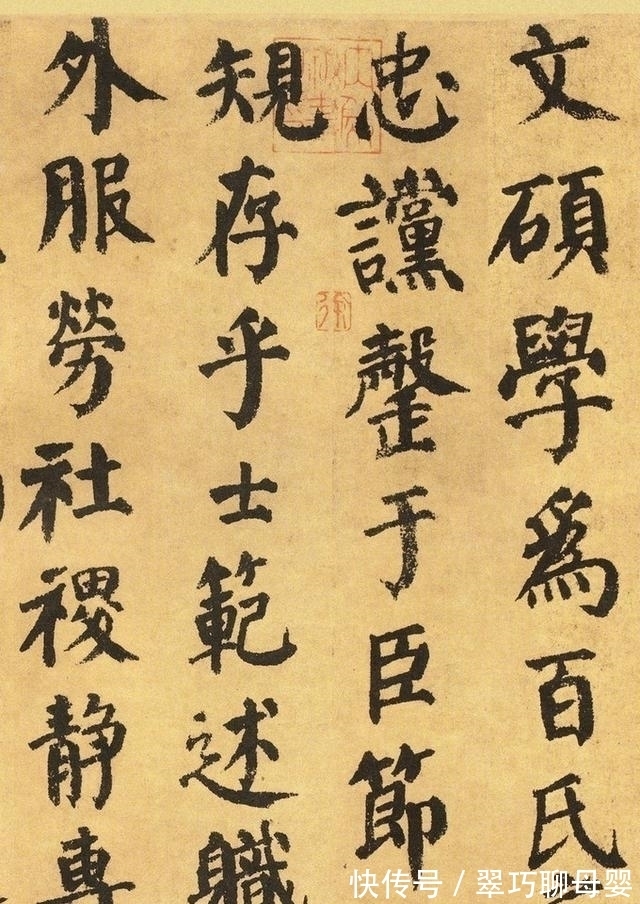 文碩學爲百氏
忠讜罄于臣節
規存乎士範述職
外服勞社稷静專
快传号 / 翠巧聊母婴